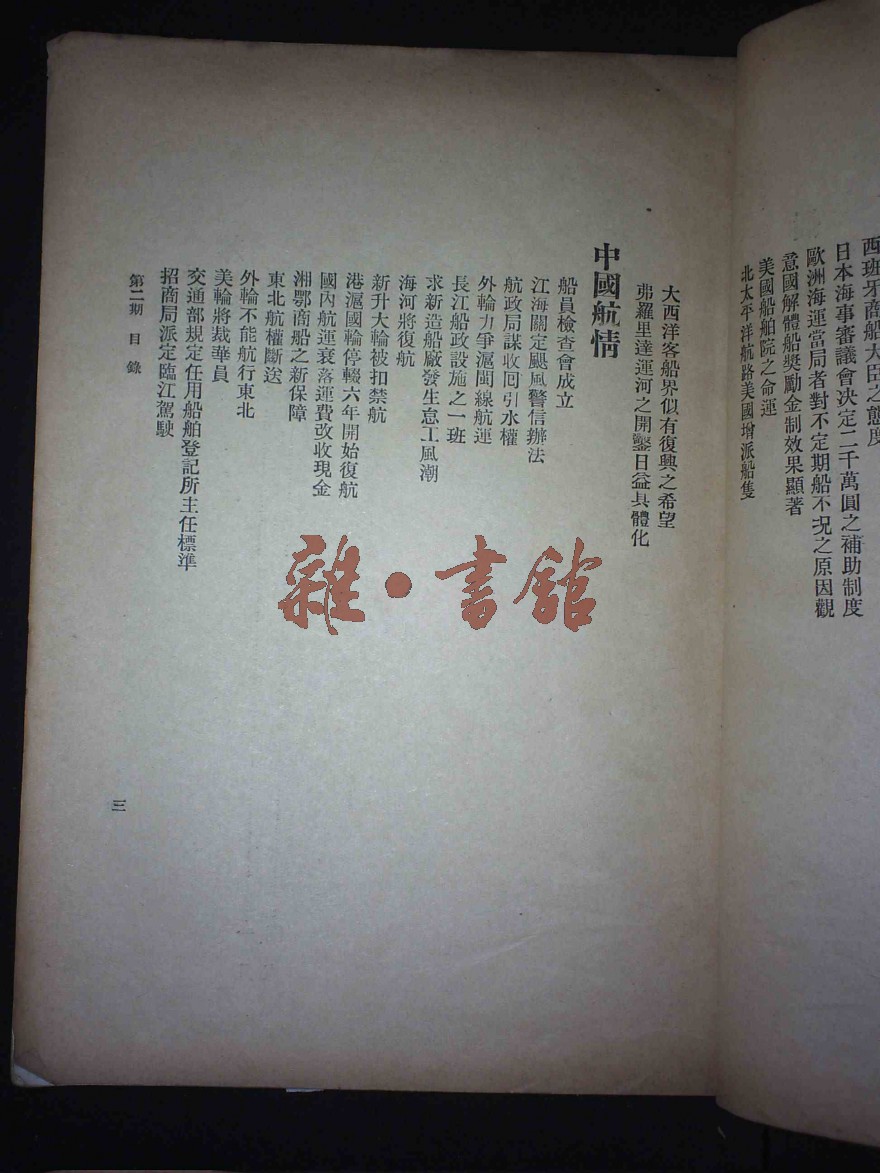 西班牙商船大臣之態度
日本海事審議會決定二千萬圓之補助制度
歐洲海運當局者對不定期船不況之原因觀
意國解體船獎勵金制效果顯著
美國船舶院之命運
北太平洋航路美國增派船隻
大西洋客船界似有復興之希望
弗羅里達運河之開鑿日益具體化
中國航情
船員檢查會成立
江海關定颶風警信辦法
航政局謀收回引水權
外輪力爭滬閩線航運
長江船政設施之一班
求新造船廠發生怠工風潮
海河將復航
新升大輪被扣禁航
港滬國輪停輟六年開始復航
國內航運衰落運費改收現金
湘鄂商船之新保障
東北航權斷送
外輪不能航行東北
美輪將裁華員
交通部規定任用船舶登記所主任標準
招商局派定臨江駕駛
第二期 目錄
三
雜·書館